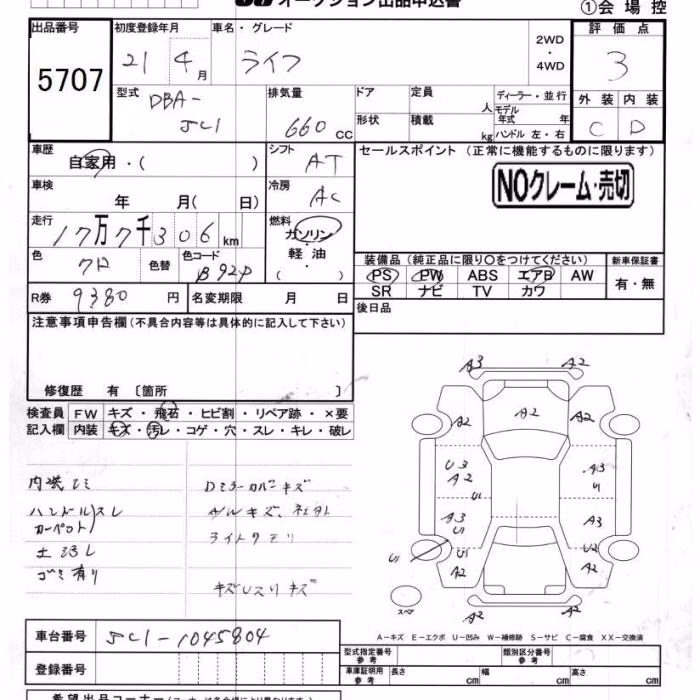 オークション出品申込書
①会場控
出品番号
5707
初度登録年月
21 4月
車名・グレード
ライフ
2WD
・
4WD
評価点
3
型式
DBA-
JC1
排気量
660 CC
ドア
形状
定員 人
積載 kg
ディーラー・並行
モデル年式 年
ハンドル 左・右
外装 内装
C D
車歴
自家用・( )
シフト
AT
セールスポイント (正常に機能するものに限ります)
NOクレーム・売切
車検
年 月( 日)
冷房
AC
走行
17万7千306km
燃料
ガソリン
・
軽油
( )
色
クロ
色替
色コード
B92P
装備品(純正品に限り〇をつけてください)
PS PW ABS エアB AW
SR ナビ TV カワ
新車保証書
有・無
R券 9380 円
名変期限 月 日
後日品
注意事項申告欄(不具合内容等は具体的に記入して下さい)
修復歴 有 〔箇所
検査員
記入欄
FW キズ・飛石・ヒビ割・リペア跡・×要
内装 キズ・汚レ・コゲ・穴・スレ・キレ・破レ
ハンドルスレ
カーペット
ゴミ有り
Dミラーカバーキズ
A3 A2
A2 A2 A2
U3 A2 U1
A3 U1
A3 U1
A3
U1 U1 U2
A2 A2
A2 A2
スペア
A－キズ E－エクボ U－凹み W－補修跡 S－サビ C－腐食 XX－交換済
車台番号
JC1-1045804
登録番号
型式指定番号
参考
類別区分番号
参考
車庫証明用
参考
長さ cm 幅 cm 高さ cm
希望出品コーナー